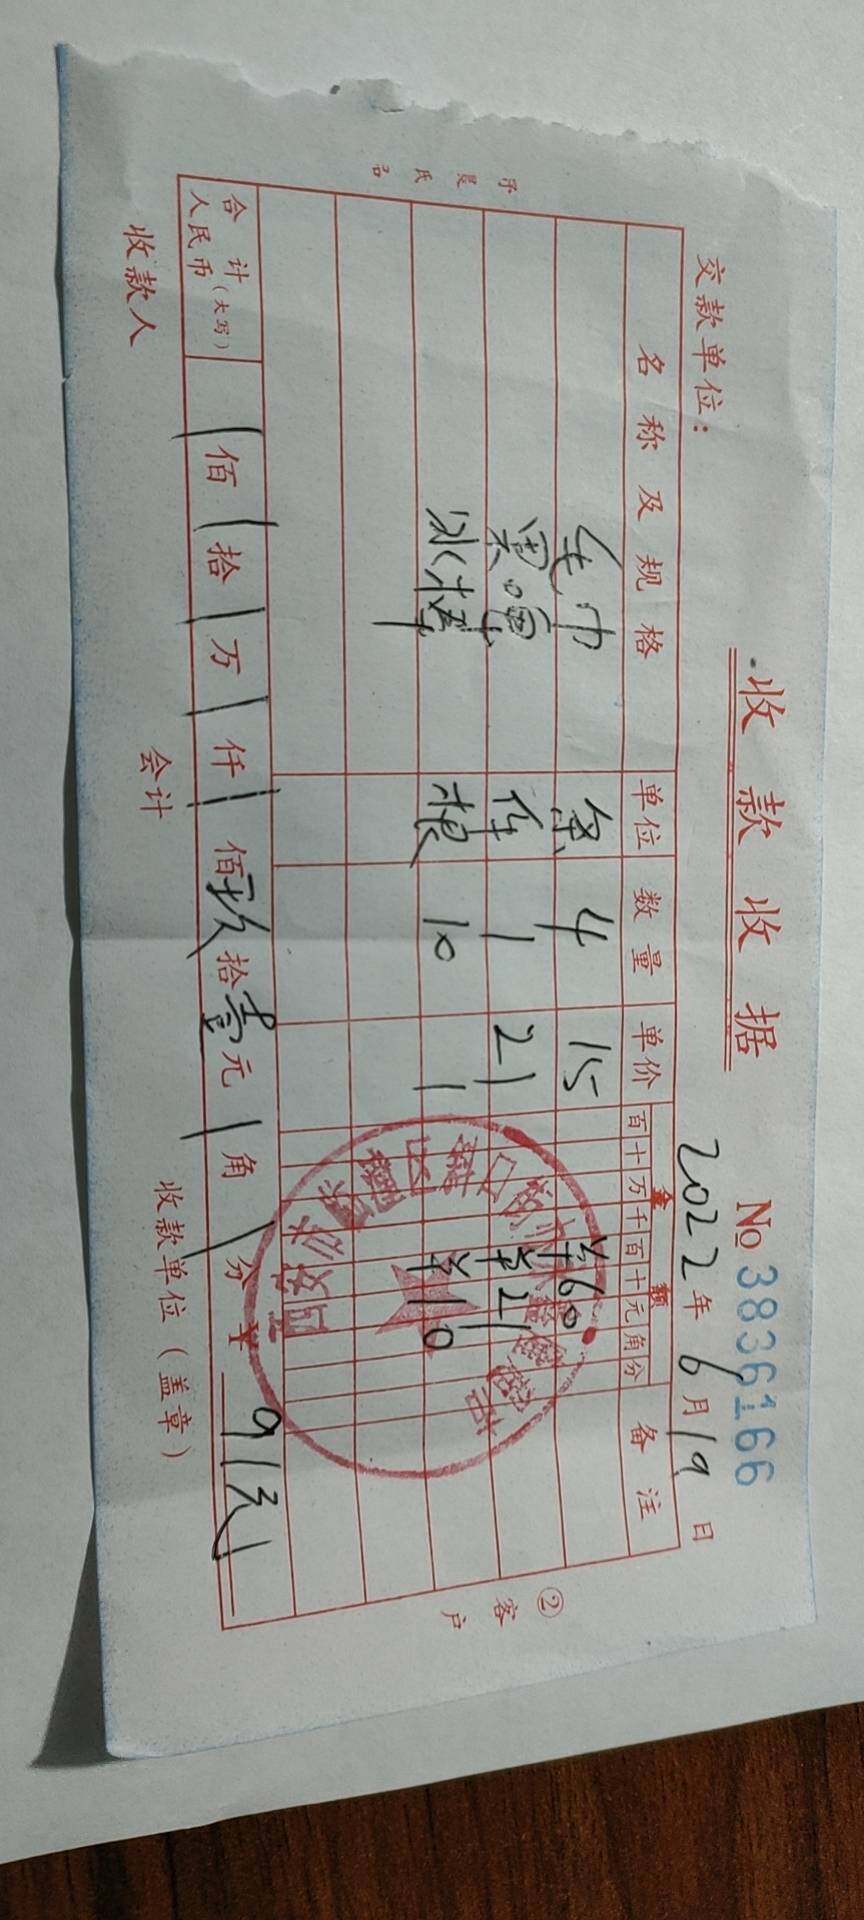 收款收据
No 3836166
交款单位：
2022年6月19日
名称及规格 单位 数量 单价 金额 备注
百十万千百十元角分
毛巾 条 4 15 ¥60
果啤 件 1 21 ¥21
冰棒 根 10 1 ¥10
合计 人民币（大写） 佰 拾 万 仟 佰 玖拾壹元 角 分 ¥ 91元
收款人 会计 收款单位（盖章）
②客户